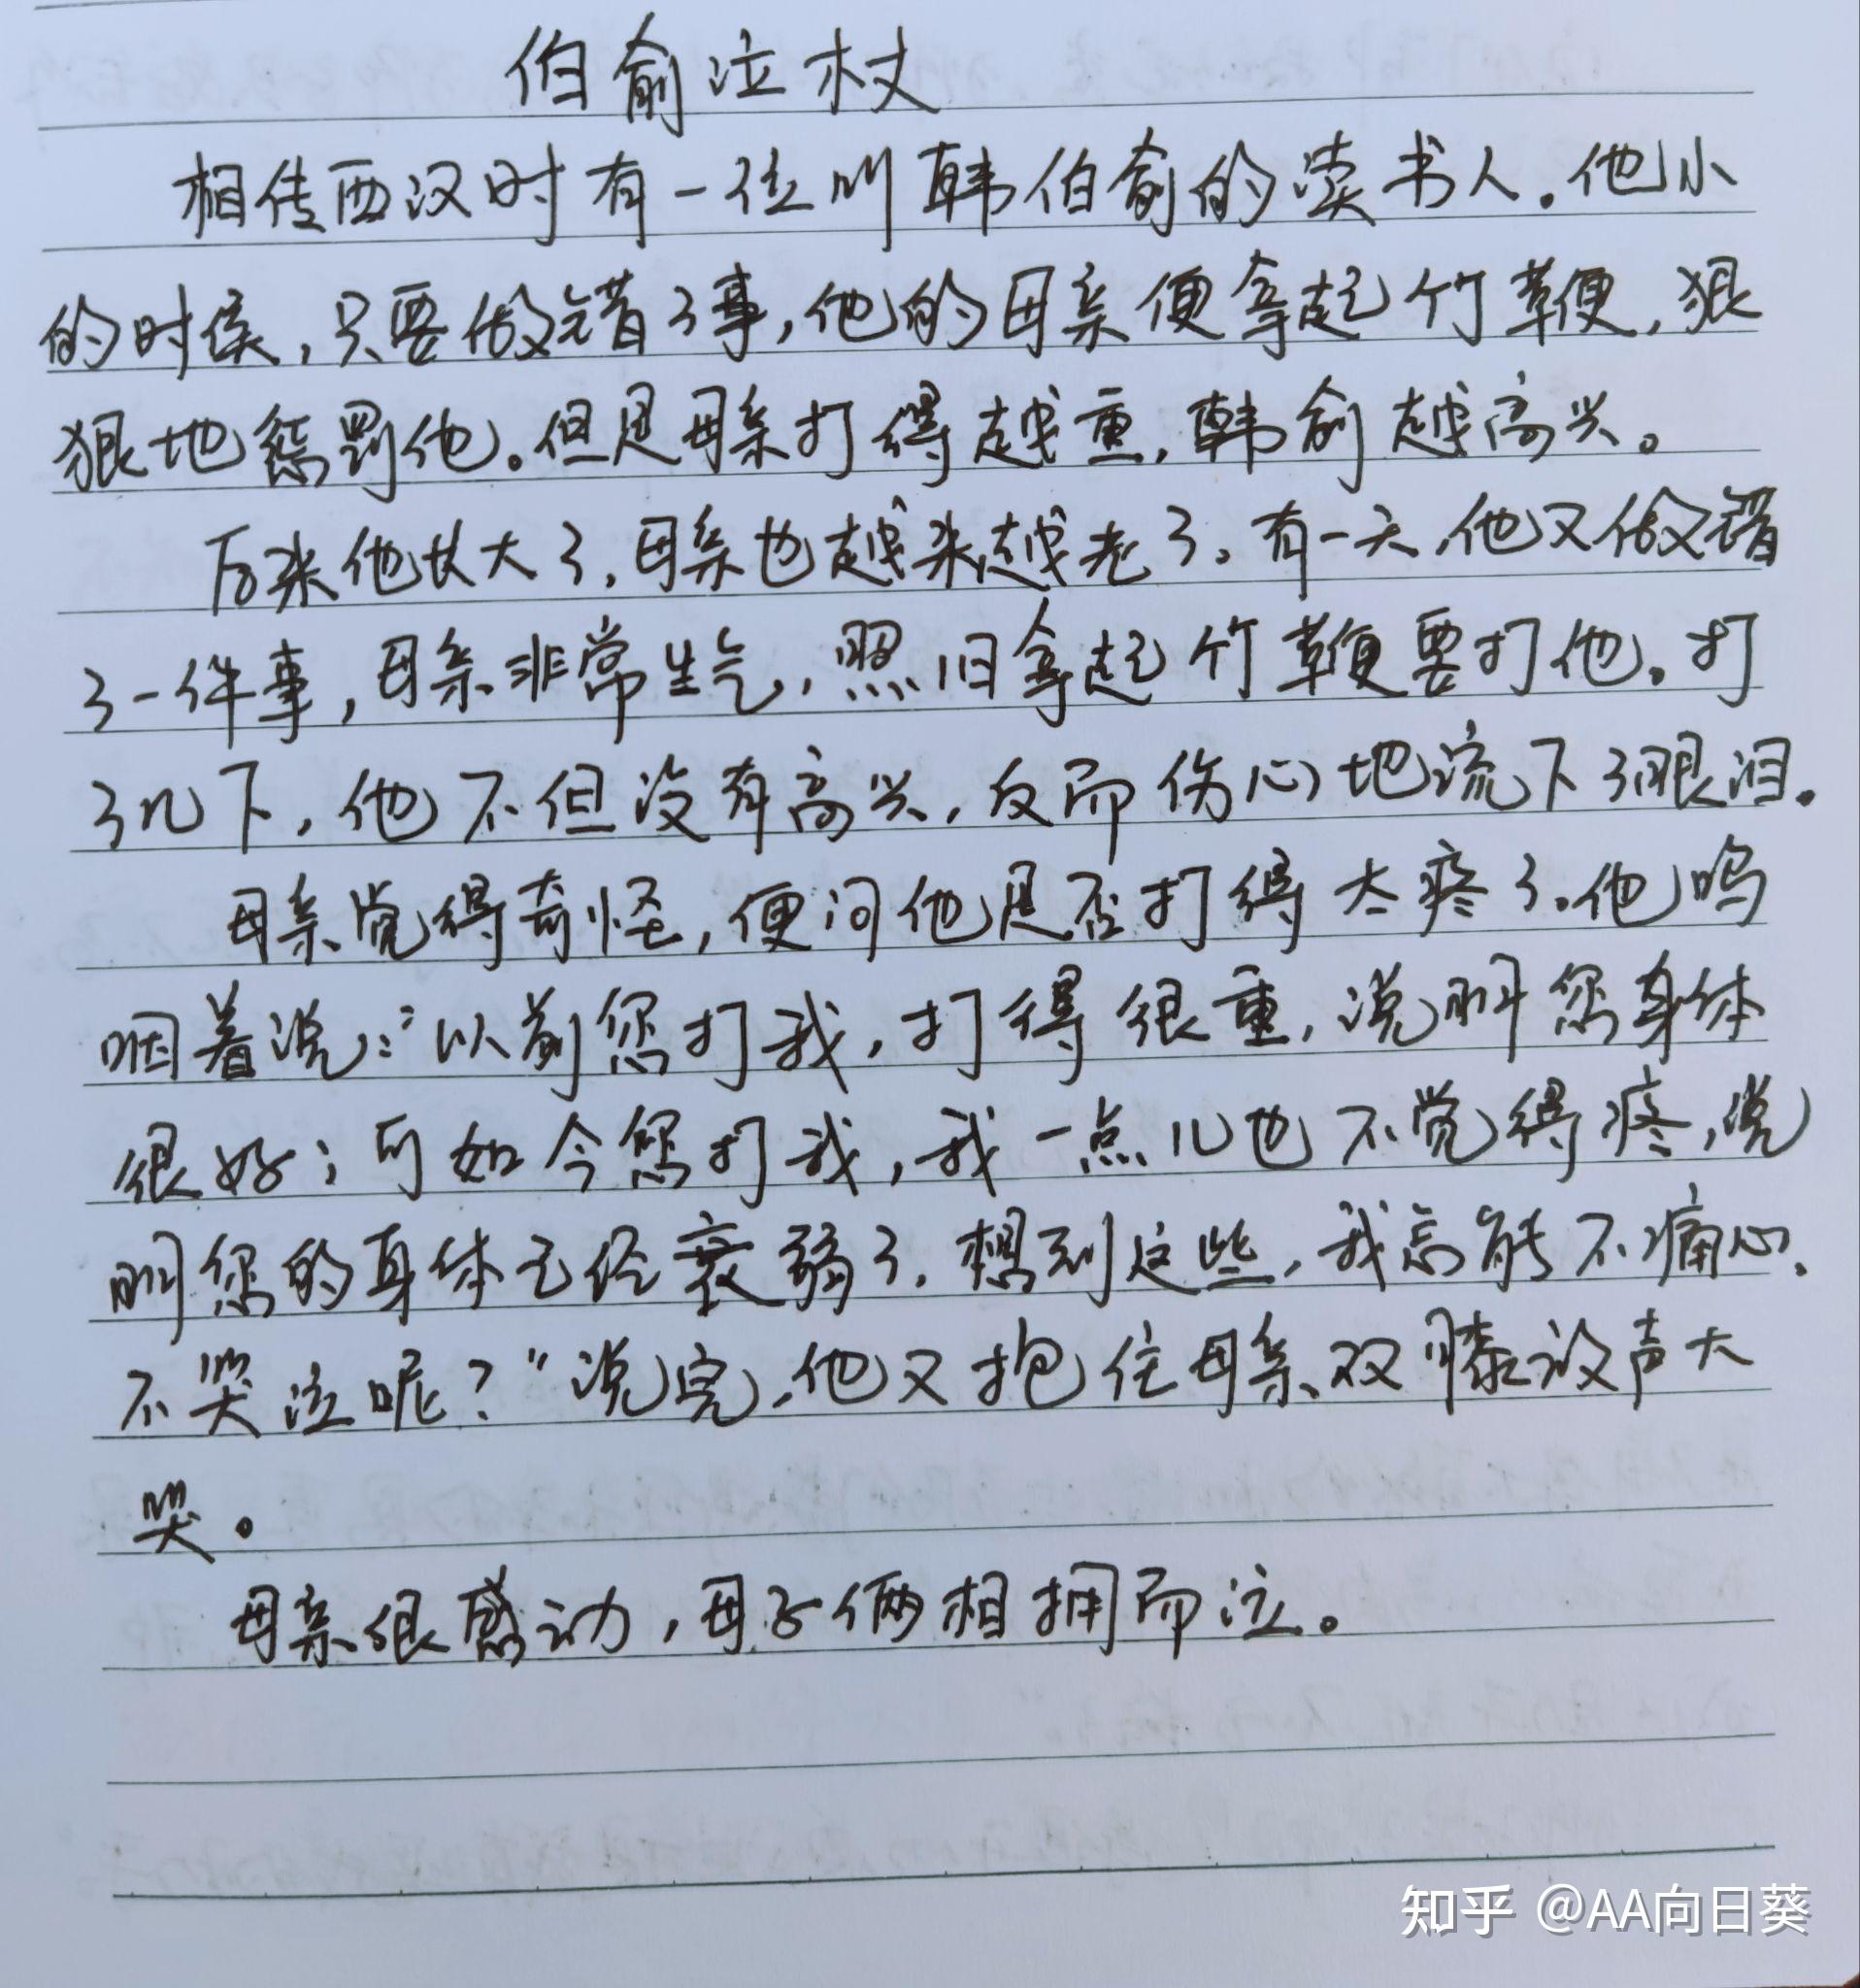 伯俞泣杖
相传西汉时有一位叫韩伯俞的读书人。他小
的时候，只要做错了事，他的母亲便拿起竹鞭，狠
狠地惩罚他。但是母亲打得越重，韩俞越高兴。
后来他长大了，母亲也越来越老了。有一天，他又做错
了一件事，母亲非常生气，照旧拿起竹鞭要打他。打
了几下，他不但没有高兴，反而伤心地流下了眼泪。
母亲觉得奇怪，便问他是否打得太疼了。他呜
咽着说：“以前您打我，打得很重，说明您身体
很好；可如今您打我，我一点儿也不觉得疼，说
明您的身体已经衰弱了，想到这些，我怎能不痛心、
不哭泣呢？”说完，他又抱住母亲双膝放声大
哭。
母亲很感动，母子俩相拥而泣。
知乎 @AA向日葵